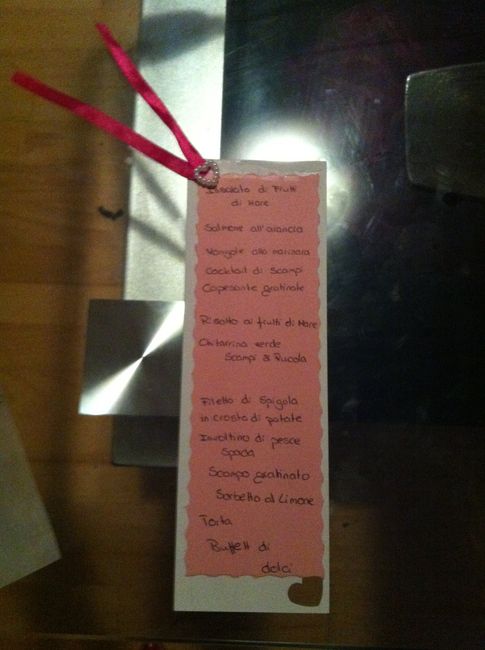 Insalata di Frutti
di Mare
Salmone all'arancia
Vongole alla marinara
Cocktail di Scampi
Capesante gratinate
Risotto ai frutti di Mare
Chitarrina verde
Scampi & Rucola
Filetto di Spigola
in crosta di patate
Involtino di pesce
Spada
Scampo gratinato
Sorbetto al Limone
Torta
Buffett di
dolci